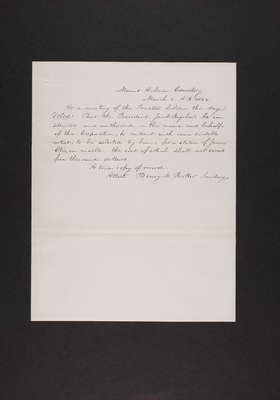 Mount Auburn Cemetery
March 2, A.D. 185
At a meeting of the Trustees holden this day
Voted. That the President, be
and authorized in the name and behalf
of the Corporation, to contract with some suitable
artist, to be selected by him, for a statue of James
Otis, in marble, the cost of which shall not exceed
five thousand dollars.
A true copy of record.
Attest Henry M. Parker Secretary